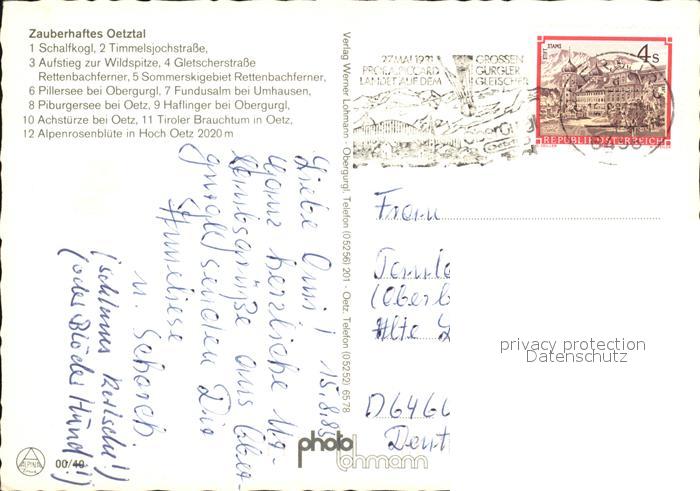 Zauberhaftes Oetztal
1 Schalfkogl, 2 Timmelsjochstraße,
3 Aufstieg zur Wildspitze, 4 Gletscherstraße
Rettenbachferner, 5 Sommerskigebiet Rettenbachferner,
6 Pillersee bei Obergurgl, 7 Fundusalm bei Umhausen,
8 Piburgersee bei Oetz, 9 Haflinger bei Obergurgl,
10 Achstürze bei Oetz, 11 Tiroler Brauchtum in Oetz,
12 Alpenrosenblüte in Hoch Oetz 2020 m
Verlag Werner Lohmann · Obergurgl, Telefon (05256) 201 · Oetz, Telefon (05252) 6578
27. MAI 1931
PROF. PICCARD
LANDET AUF DEM
GROSSEN
GURGLER
GLETSCHER
STIFT STAMS
4 S
REPUBLIK ÖSTERREICH
15.8.85
Liebe Omi!
Ganz herzliche Ur-
laubsgrüße aus Ober-
gurgl senden Dir
Anneliese
u. Schorch.
Frau
(Oberb
Alte
D 646
Deut
privacy protection
Datenschutz
ALPINA
00/40
photo
lohmann